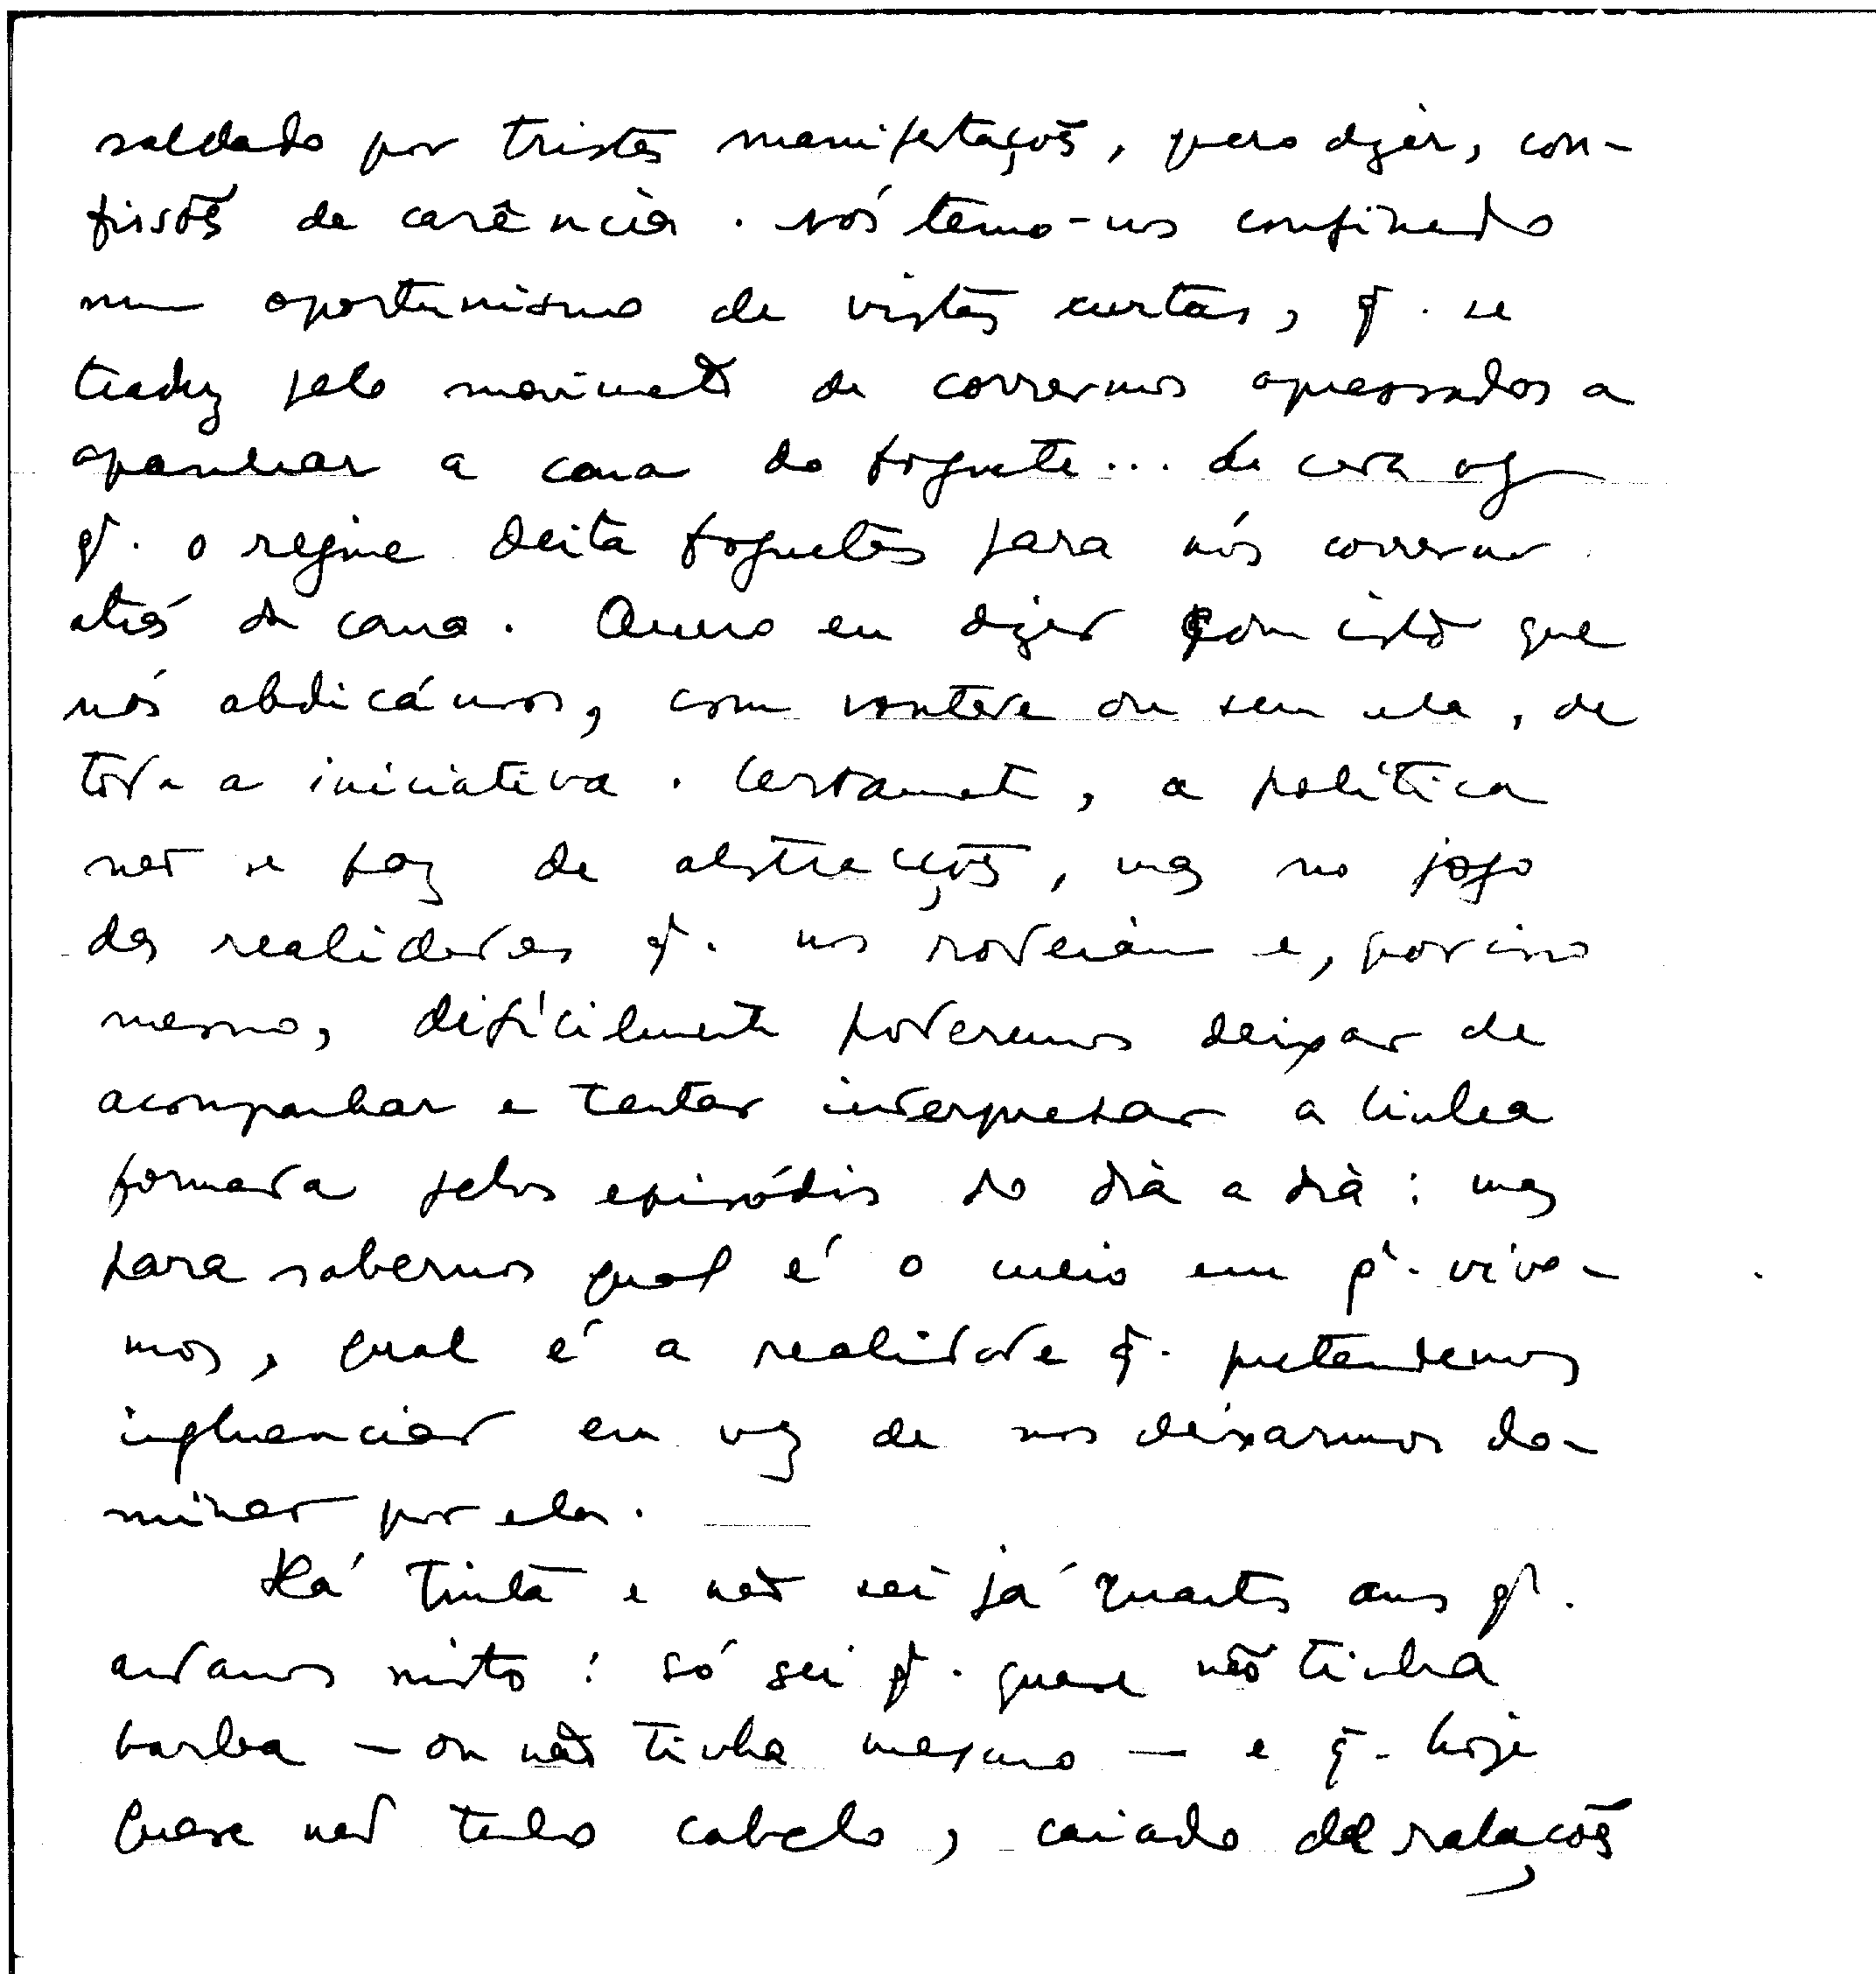 saldado por tristes manifestações, quero dizer, con-
fissões de carência. Nós temo-nos confinado
num oportunismo de vistas curtas, q. se
traduz pelo movimento de corrermos apressados a
apanhar a cana do foguete... de cada vez
q. o regime deita foguetes para nós corrermos
atrás da cana. Quero eu dizer com isto que
nós abdicámos, com vontade ou sem ela, de
toda a iniciativa. Certamente, a política
não se faz de abstracções, mas no jogo
das realidades q. nos rodeiam e, por isso
mesmo, dificilmente poderemos deixar de
acompanhar e tentar interpretar a linha
formada pelos episódios do dia a dia: mas
para sabermos qual é o meio em q. vive-
mos, qual é a realidade q. pretendemos
influenciar em vez de nos deixarmos do-
minar por ela.
Há trinta e não sei já quantos anos q.
andamos nisto: só sei q. quase não tinha
barba — ou não tinha mesmo — e q. hoje
quase não tenho cabelo, caiado de ralações